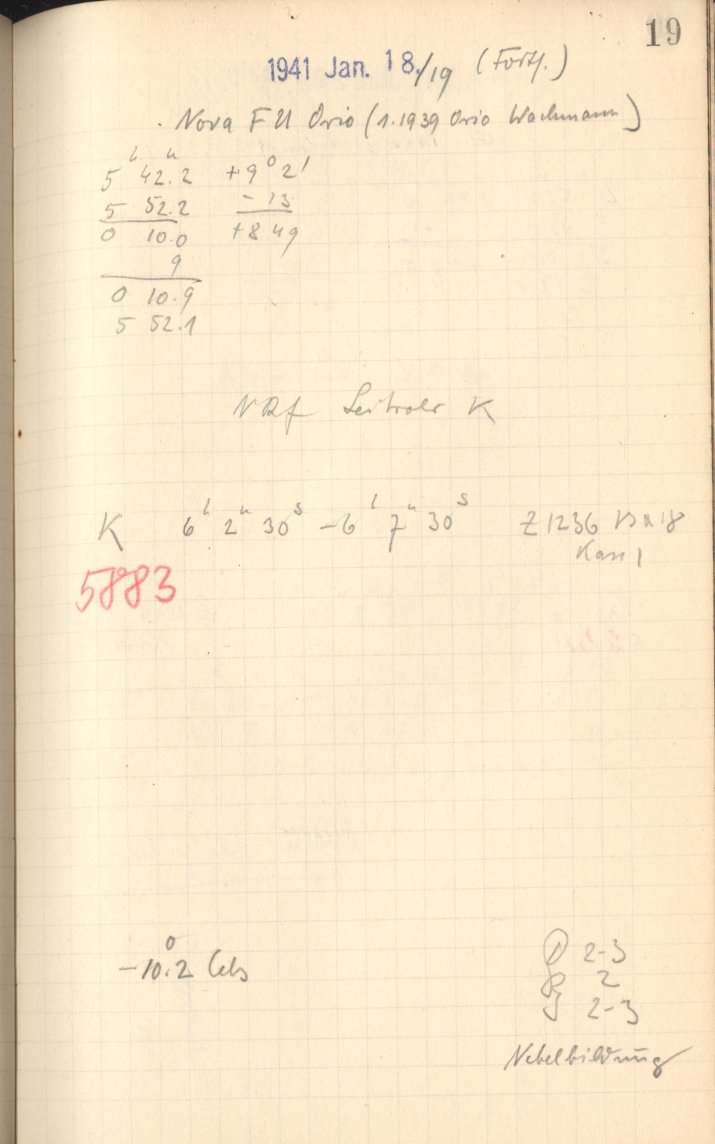 19
1941 Jan. 18./19 (Forts.)
Nova FU Orio (1.1939 Orio Wachmann)
5h 42m.2 +9° 2'
5 52.2 - 13
0 10.0 +8 49
9
0 10.9
5 52.1
Leitrohr K
K 6h 2m 30s - 6h 7m 30s Z 1236
Kass 1
5883
-10°.2 Cels
2-3
2
2-3
Nebelbildung